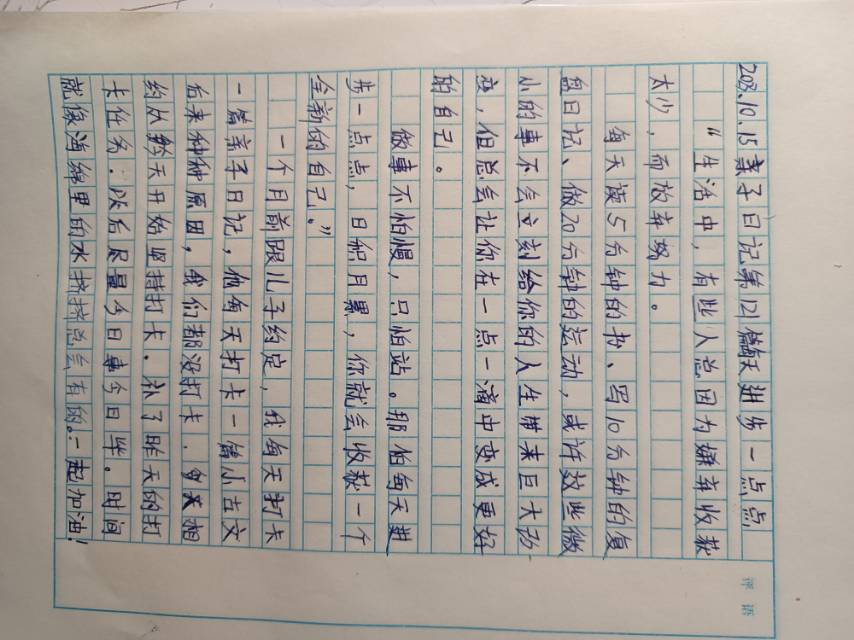 2023.10.15亲子日记第121篇每天进步一点点
“生活中，有些人总因为嫌弃收获
太少，而放弃努力。
每天读5分钟的书、写10分钟的复
盘日记、做20分钟的运动，或许这些微
小的事不会立刻给你的人生带来巨大改
变，但总会让你在一点一滴中变成更好
的自己。
做事不怕慢，只怕站。那怕每天进
步一点点，日积月累，你就会收获一个
全新的自己。”
一个月前跟儿子约定，我每天打卡
一篇亲子日记，他每天打卡一篇小古文
后来种种原因，我们都没打卡．天相
约从天开始坚持打卡．补了昨天的打
卡任务．以后尽量今日事今日毕。时间
就像海绵里的水挤挤总会有的。一起加油！
评语